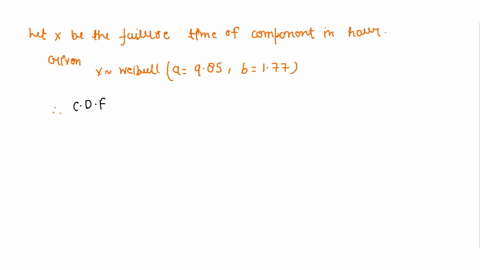 Let x be the failure time of component in hour.
Given
x ~ weibull (a = 9.05, b = 1.77)
∴ C.D.F